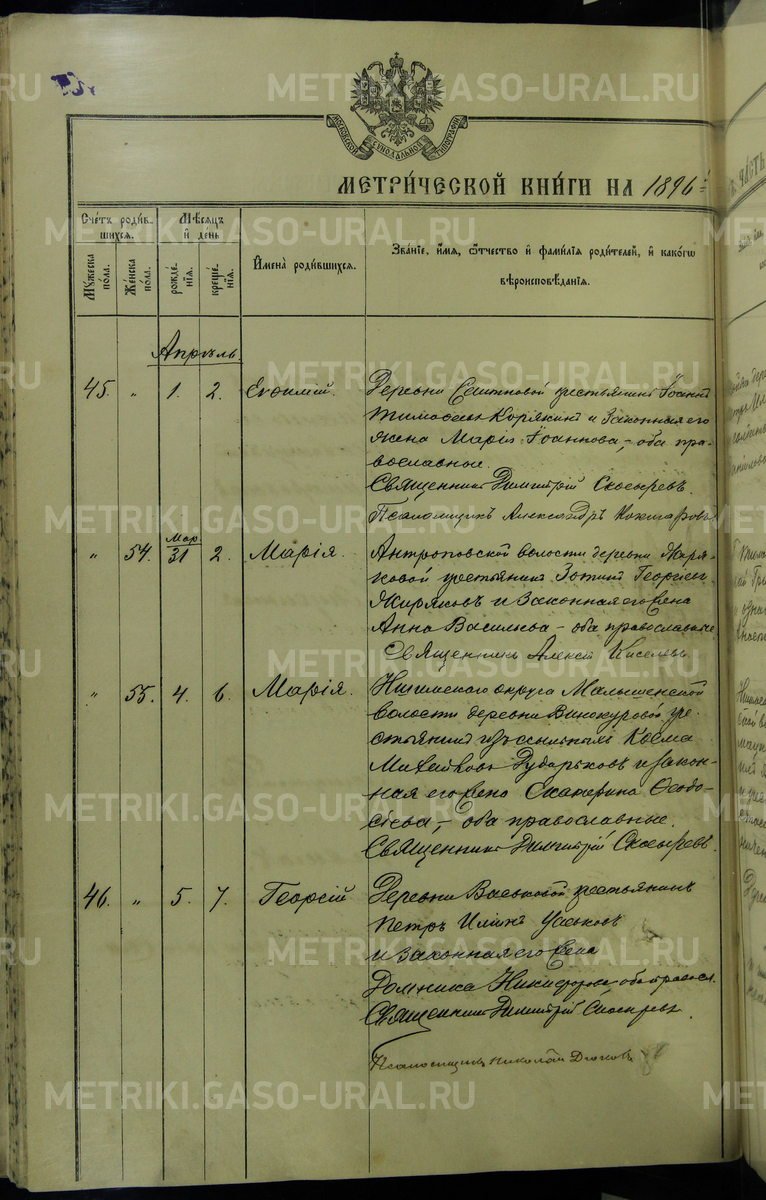 METRIKI.GASO-URAL.RU
МОСКОВСКОЙ СѴНОДАЛЬНОЙ ТИПОГРАФІИ
МЕТРИ́ЧЕСКОЙ КНИ́ГИ НА 1896 г.
Сче́тъ роди́вшихся.
Му́жеска по́ла.
Же́нска по́ла.
Мѣ́сяцъ и҆ де́нь
рожде́нія.
креще́нія.
И҆мена̀ роди́вшихся.
Зва́ніе, и҆́мя, ѻ҆́тчество и҆ фами́лія роди́телей, и҆ како́гѡ
вѣроисповѣ́данія.
Апрѣль.
45. " 1. 2. Евѳимій. Деревни крестьянинъ Іоаннъ
Тимоѳеевъ Корякинъ и законная его
жена Марія Іоаннова, – оба пра-
вославные.
Священникъ Димитрій Скосыревъ.
Псаломщикъ Александръ
" 54. Мар. 31 2. Марія. Антроповской волости деревни Жиря-
ковой крестьянинъ Зотикъ Георгіевъ
Жиряковъ и законная его жена
Анна Васильева – оба православные
Священникъ Алексій Киселевъ
" 55. 4. 6. Марія. Ишимского округа Малышенской
волости деревни Винокуровой кре-
стьянинъ изъ ссыльныхъ Косма
Михайловъ и закон-
ная его жена Екатерина Ѳеодо-
сіева, – оба православные.
Священникъ Димитрій Скосыревъ.
46. " 5. 7. Георгій Деревни Васьковой крестьянинъ
Петръ Илiинъ Уаськовъ
и законная его жена
Домника Никифорова – оба правосл.
Священникъ Димитрій Скосыревъ.
Псаломщикъ Николай